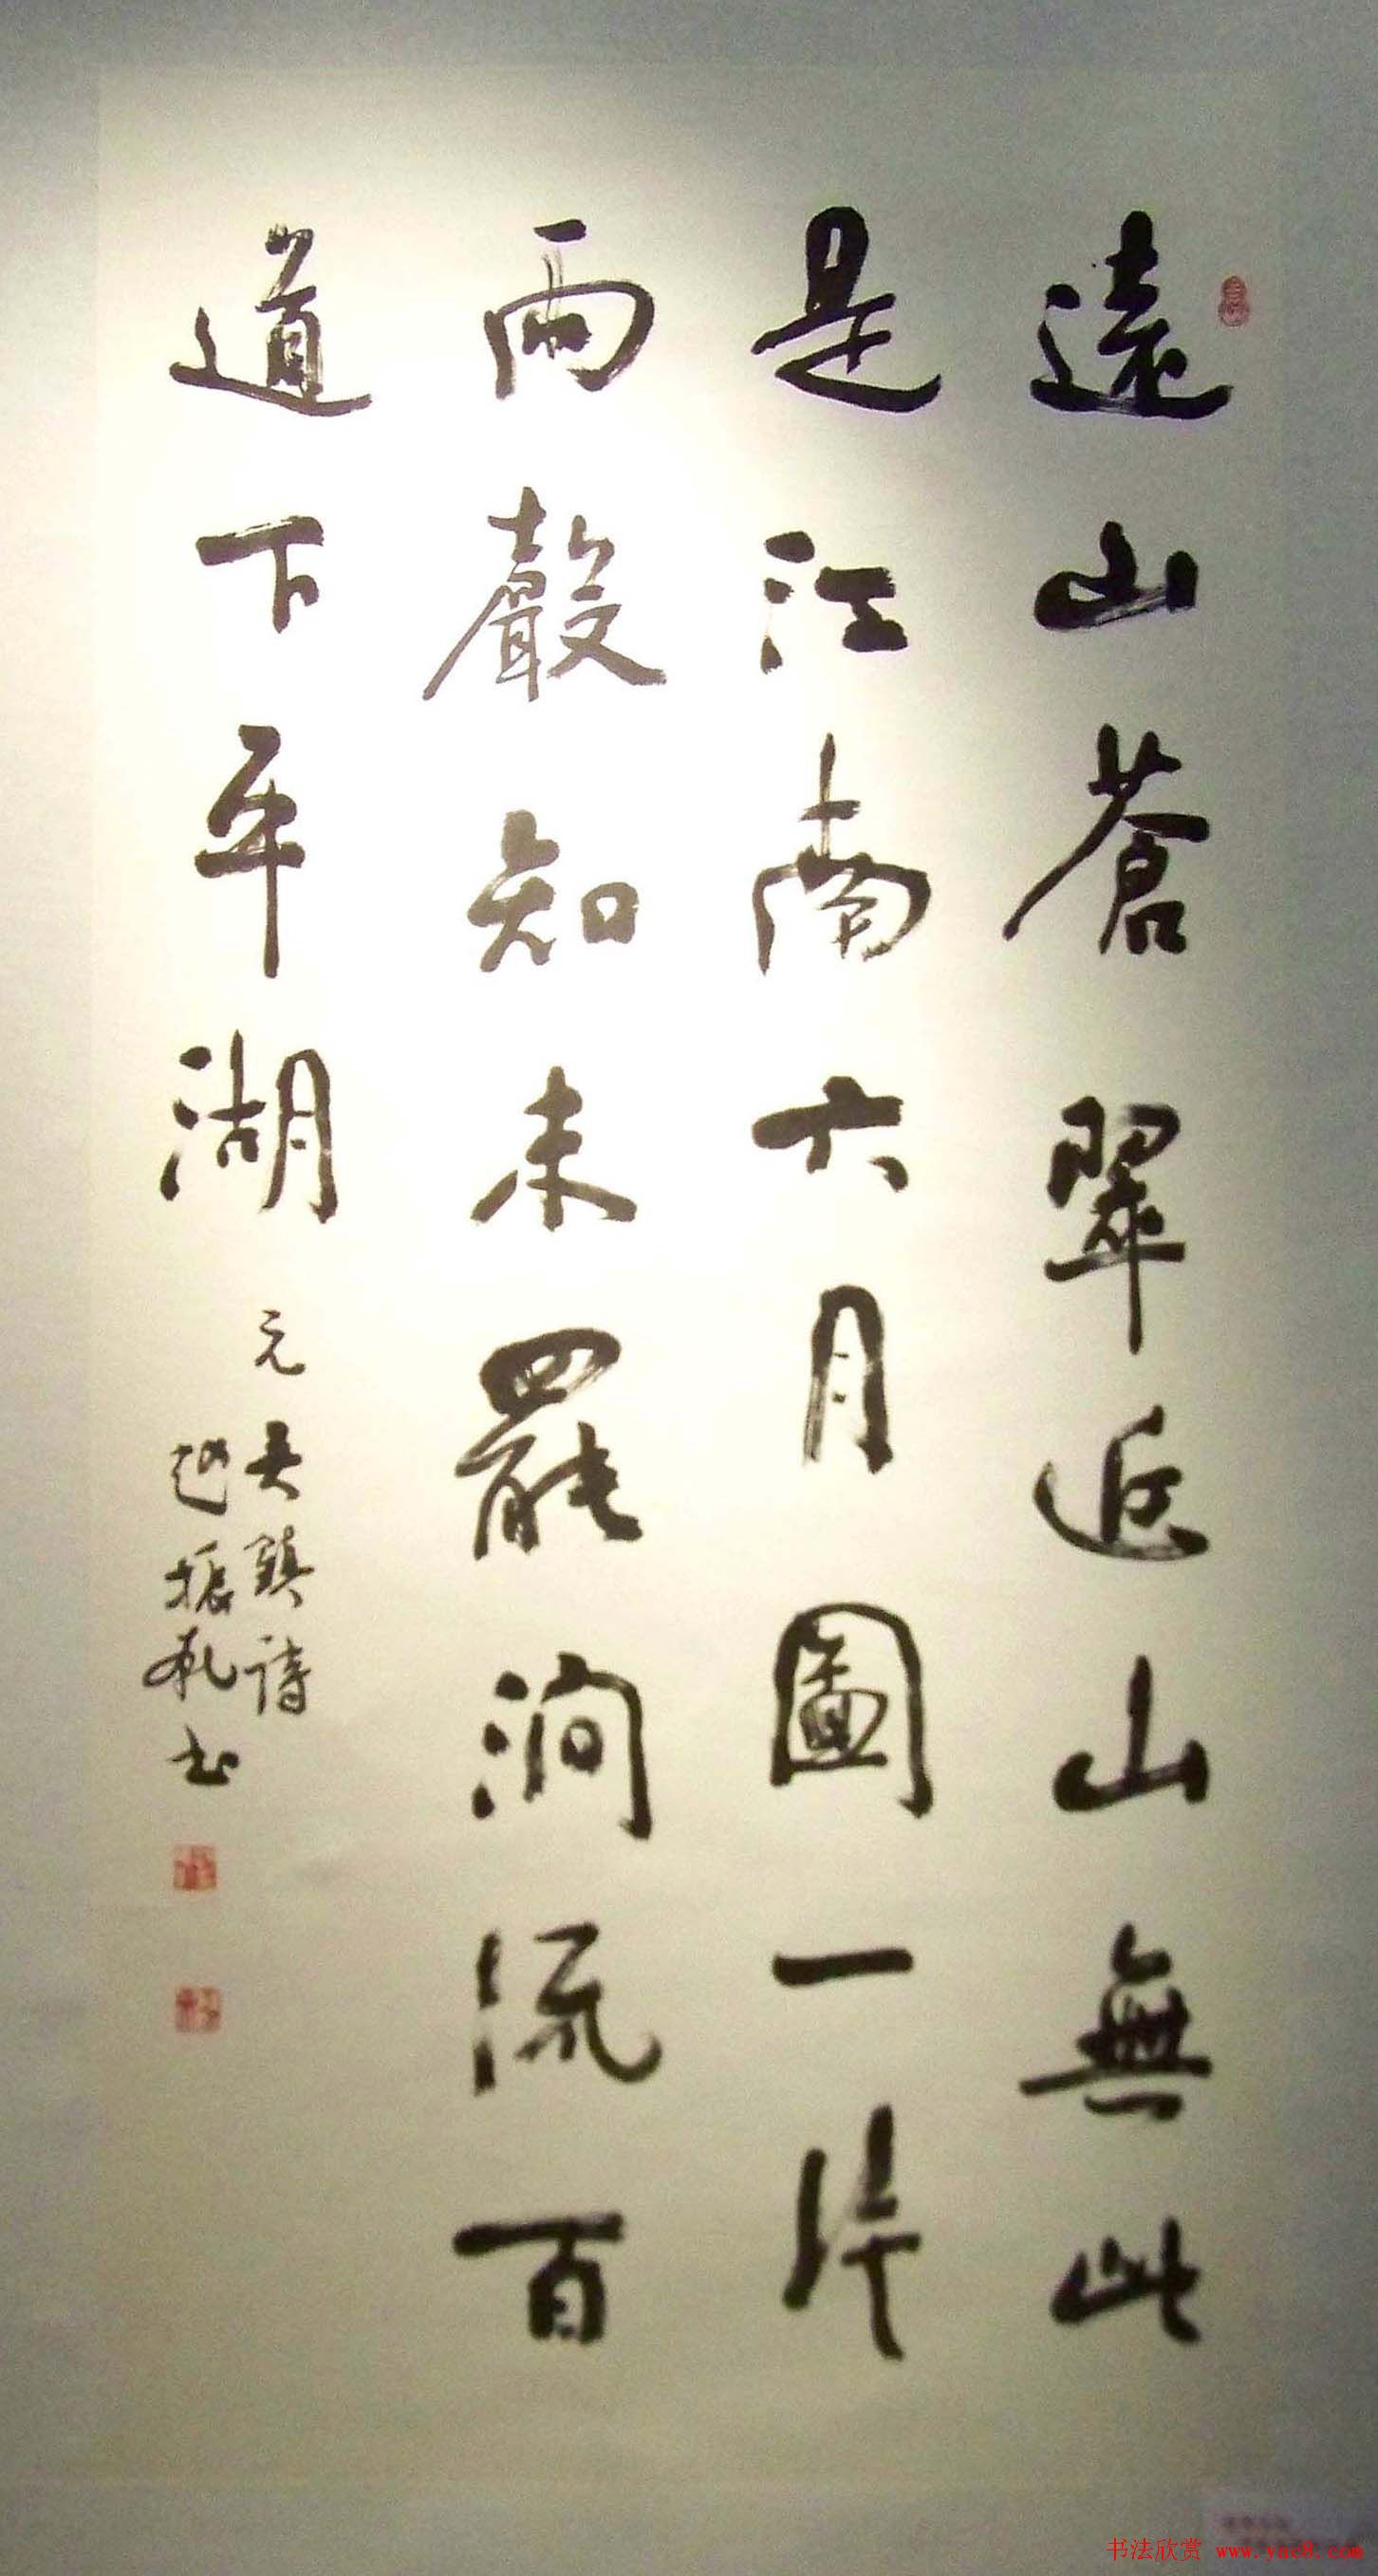 遠山蒼翠近山無此
是江南六月圖一片
雨聲知未罷澗流百
道下平湖
元吳鎮詩
趙振乾书
书法欣赏 www.yac8.com